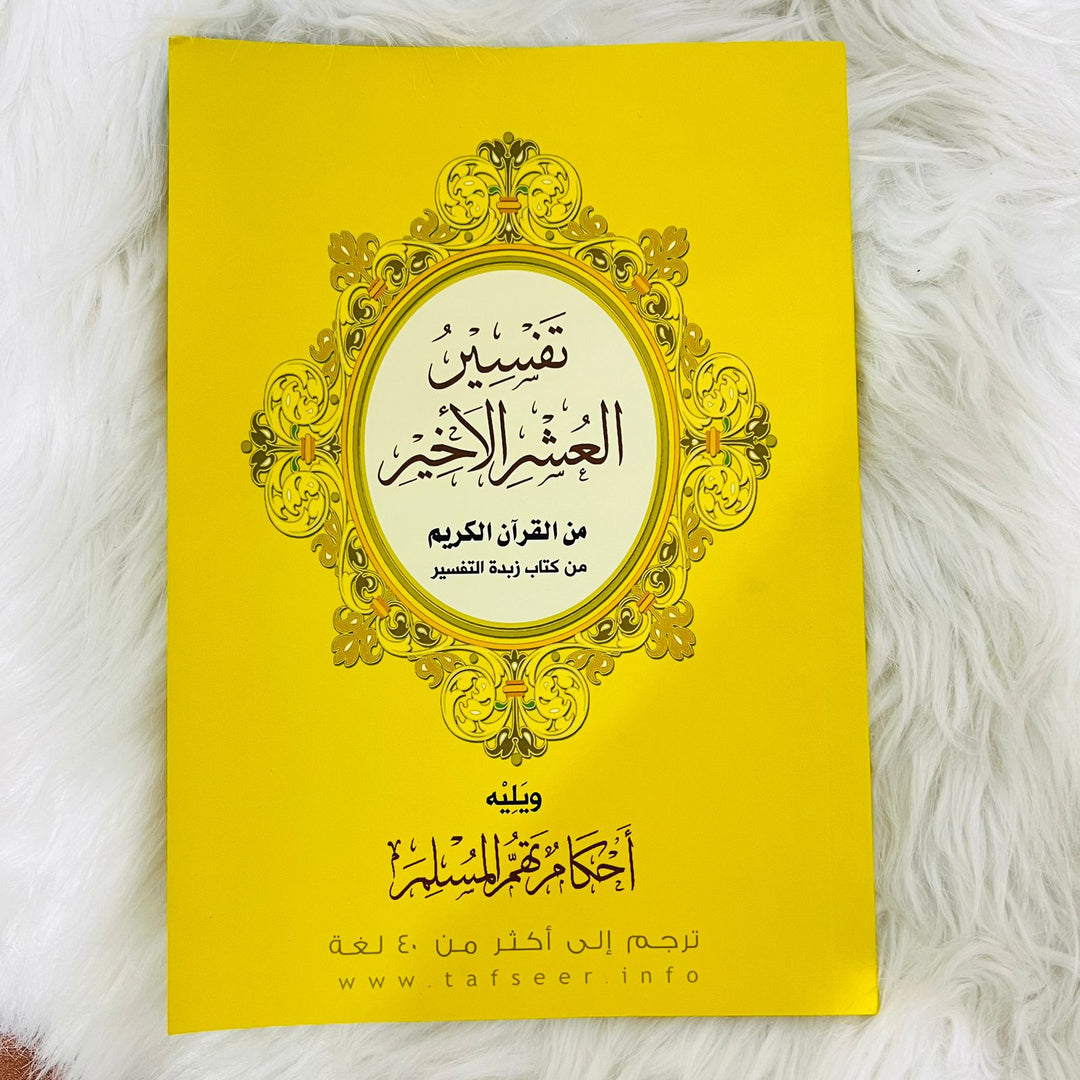 تَفْسِيْرُ
العُشْرِ الأَخِيْرِ
من القرآن الكريم
من كتاب زبدة التفسير
ويَلِيْه
أَحْكَامٌ تَهُمُّ المُسْلِمَ
ترجم إلى أكثر من ٤٠ لغة
www.tafseer.info